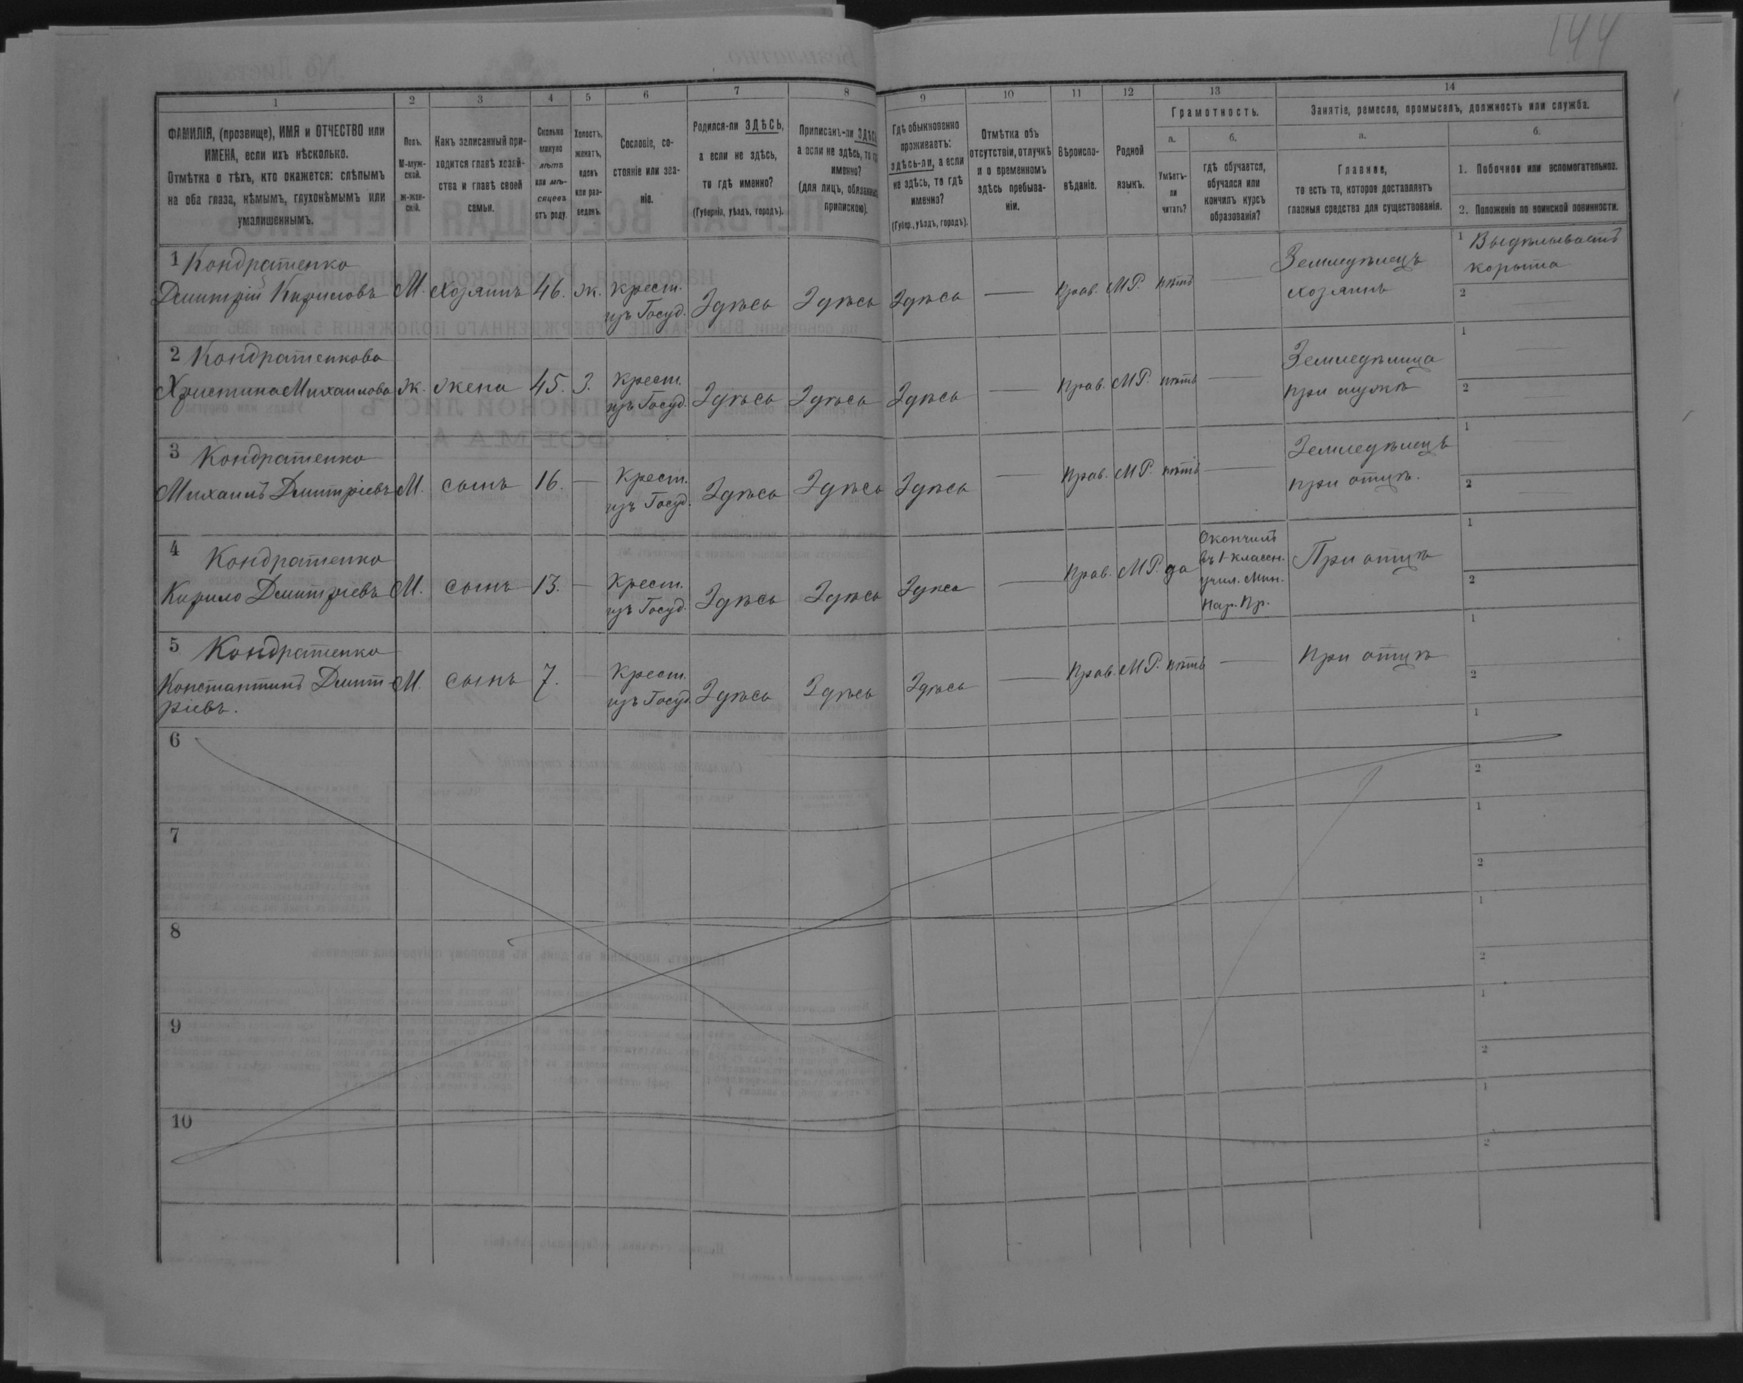 144
1 2 3 4 5 6 7 8 9 10 11 12 13 14
ФАМИЛІЯ, (прозвище), ИМЯ и ОТЧЕСТВО или
ИМЕНА, если ихъ нѣсколько.
Отмѣтка о тѣхъ, кто окажется: слѣпымъ
на оба глаза, нѣмымъ, глухонѣмымъ или
умалишеннымъ.
Полъ.
М-муж-
ской.
Ж-жен-
скій.
Какъ записанный при-
ходится главѣ хозяй-
ства и главѣ своей
семьи.
Сколько
минуло
лѣтъ
или мѣ-
сяцевъ
отъ роду.
Холостъ,
женатъ,
вдовъ
или раз-
веденъ.
Сословіе, со-
стояніе или зва-
ніе.
Родился-ли ЗДѢСЬ,
а если не здѣсь,
то гдѣ именно?
(Губернія, уѣздъ, городъ).
Приписанъ-ли ЗДѢСЬ,
а если не здѣсь, то гдѣ
именно?
(для лицъ, обязанныхъ
припискою).
Гдѣ обыкновенно
проживаетъ:
здѣсь-ли, а если
не здѣсь, то гдѣ
именно?
(Губер., уѣздъ, городъ).
Отмѣтка объ
отсутствіи, отлучкѣ
и о временномъ
здѣсь пребыва-
ніи.
Вѣроиспо-
вѣданіе.
Родной
языкъ.
Грамотность.
а.
Умѣетъ-
ли
читать?
б.
гдѣ обучается,
обучался или
кончилъ курсъ
образованія?
Занятіе, ремесло, промыселъ, должность или служба.
а.
Главное,
то есть то, которое доставляетъ
главныя средства для существованія.
б.
1. Побочное или вспомогательное.
2. Положеніе по воинской повинности.
1 Кондратенко
Дмитрій Кириловъ М. хозяинъ 46. ж. Крест. изъ Госуд. Здѣсь Здѣсь Здѣсь — Прав. МР. нѣтъ — Земледѣлецъ хозяинъ
1 Выдѣлываетъ
корыта
2
2 Кондратенкова
Христина Михаилова ж. жена 45. З. Крест. изъ Госуд. Здѣсь Здѣсь Здѣсь — Прав. МР. нѣтъ — Земледѣлица при мужѣ
1
2
3 Кондратенко
Михаилъ Дмитріевъ М. сынъ 16. — Крест. изъ Госуд. Здѣсь Здѣсь Здѣсь — Прав. МР. нѣтъ — Земледѣлецъ при отцѣ.
1
2
4 Кондратенко
Кирило Дмитріевъ М. сынъ 13. — Крест. изъ Госуд. Здѣсь Здѣсь Здѣсь — Прав. МР. да
Окончилъ
въ 1 классн.
учил. Мин.
Нар. Пр.
При отцѣ
1
2
5 Кондратенко
Константинъ Дмит-
ріевъ. М. сынъ 7. — Крест. изъ Госуд. Здѣсь Здѣсь Здѣсь — Прав. МР. нѣтъ — При отцѣ
1
2
6
1
2
7
1
2
8
1
2
9
1
2
10
1
2